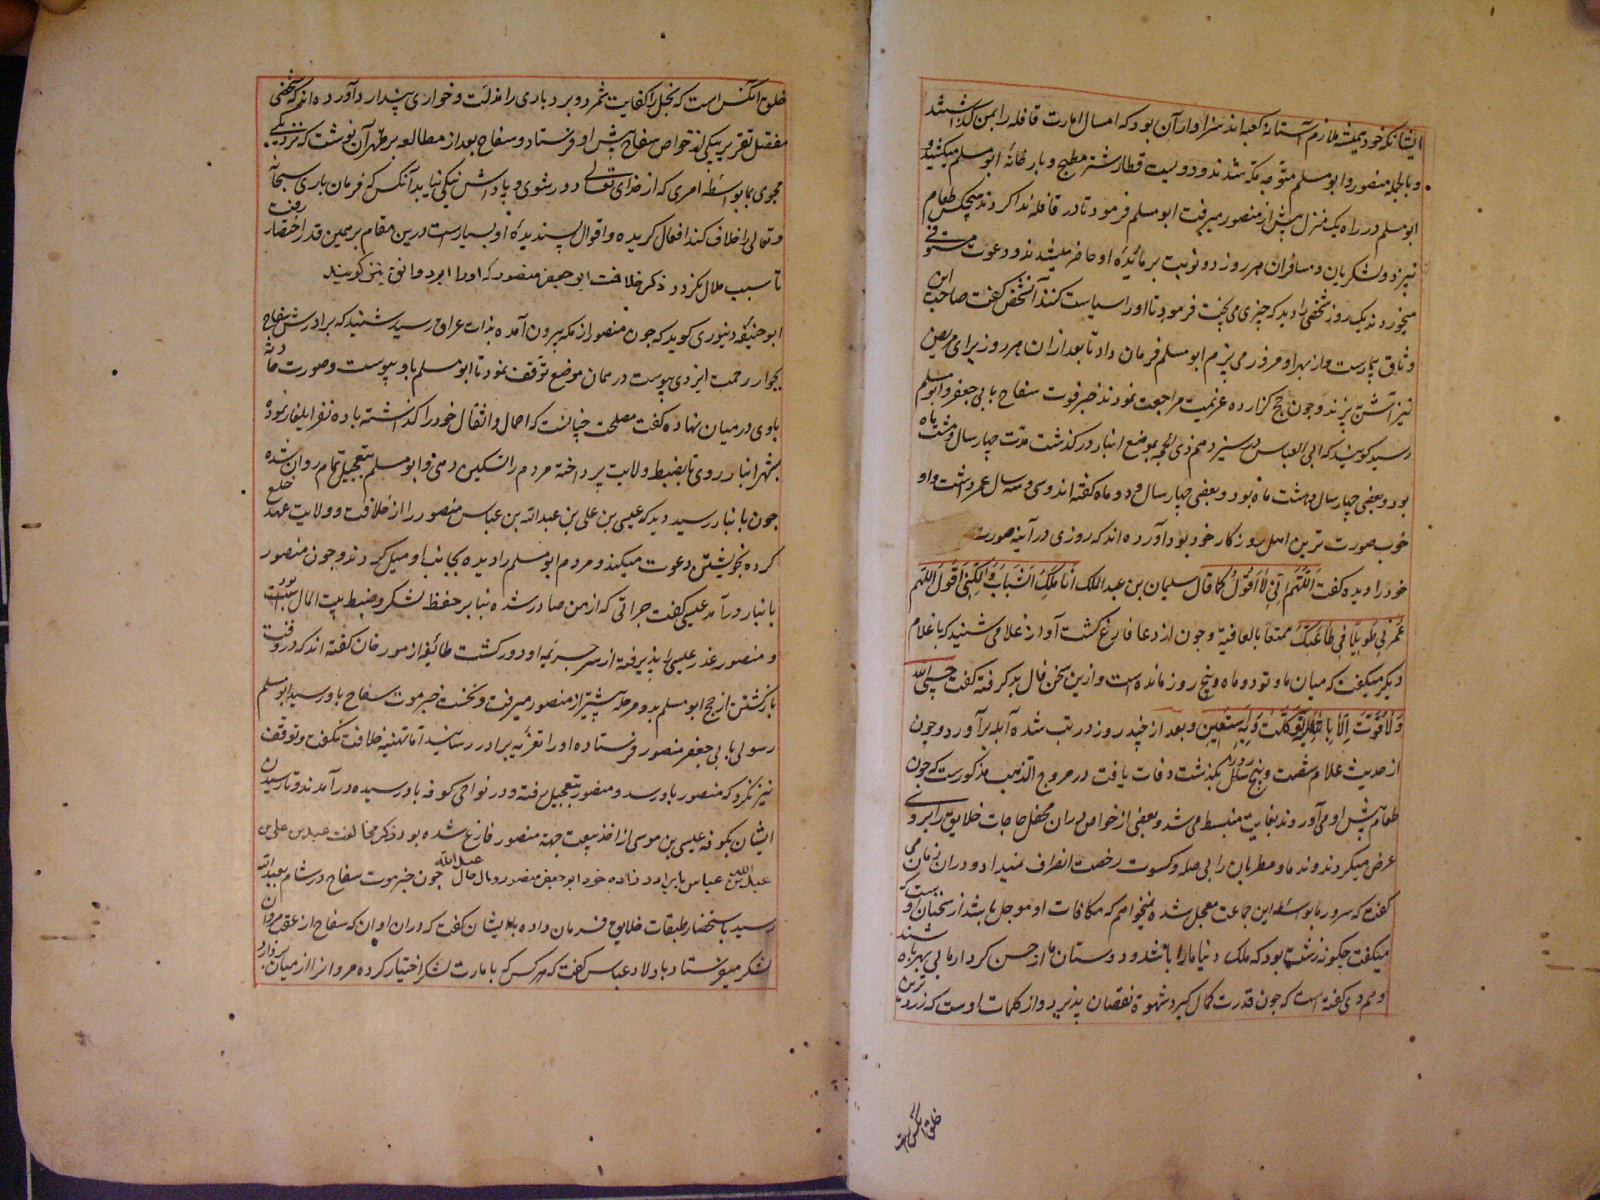 ایشانکه خود همیشه ملازم آستانهٔ کعبه‌اند سزاوار آن بود که امسال امارت قافله را بمن گذاشتند
و بالجمله منصور و ابو مسلم متوجه مکه شدند و دویست قطار شتر مطبخ و بارخانهٔ ابو مسلم میکشید و
ابو مسلم در راه یک منزل پیش از منصور میرفت ابو مسلم فرمود تا در قافله ندا کردند که هیچکس طعام
نپزد و لشکریان و مسافران هر روز دو نوبت بر مائدهٔ او حاضر میشدند و دعوت
میخوردند یک روز شخصی را دید که چیزی می پخت فرمود تا او را سیاست کنند آنشخص گفت صاحب این
وثاق بیمارست و از بهر او مزور می پزم ابو مسلم فرمان داد تا بعد از ان هر روز برای مریض
نیز آش پزند و چون حج گزارده عزیمت مراجعت نمودند خبر فوت سفاح بابی جعفر و ابو مسلم
رسید کویند که ابی العباس در سیزدهم ذی الحجه بموضع انبار در کذشت مدت چهار سال و هشت ماه
بود و بعضی چهار سال و هشت ماه بود و بعضی چهار سال و دو ماه کفته اند و سی و سه سال عمر داشت و او
خوب صورت ترین اهل روزکار خود بود آورده اند که روزی در آینه صورت
خود را دیده کفت اللهم انی لا اقول کما قال سلیمان بن عبد الملک انا ملک الشباب ولکنی اقول اللهم
عمرنی طویلا فی طاعتک ممتعا بالعافیة و چون از دعا فارغ کشت آواز غلامی شنید که با غلام
دیکر میکفت که میان ما و تو دو ماه و پنج روز مانده است و ازین سخن فال بد کرفته کفت حسبی الله
ولا قوت الا بالله علیه توکلت وبه استعین و بعد از چند روز در تب شده آبله برآورد و چون
از حدیث غلام شصت و پنج روز بکذشت وفات یافت در مروج الذهب مذکورست که چون
طعام پیش او می آوردند بغایت منبسط می شد و بعضی از خواص در ان محفل حاجات خلایق را بر وی
عرض میکردند و ندما و مطربان را بی صله و کسوت رخصت انصراف نمیداد و در ان زمان می
کفت که سرور ما بواسطه این جماعت معجل شده نمیخواهم که مکافات او موجل باشد از سخنان اوست که
میکفت چکونه زشت بود که ملک دنیا ما را باشد و دوستان ما از حسن کردار ما بی بهره باشند
و هم وی کفته است که چون قدرت کمال کیرد شهوة نقصان پذیرد و از کلمات اوست که زردترین
خلق آنکس است
خلق آنکس است که بخل را کفایت شمرد و بردباری را مذلت و خواری پندارد آورده اند که شخصی
مفصل تقریر یکی از خواص سفاح پیش او فرستاد و سفاح بعد از مطالعه بر ظهر آن نوشت که نزدیکی
مجوی بما بواسطه امری که از خدای تعالی دور شوی و پاداش نیکی نیابد آنکس که فرمان باری سبحانه
و تعالی را خلاف کند افعال کزیده و اقوال پسندیده او بسیارست درین مقام بر همین قدر اختصار رفت
تا سبب ملال نکردد ذکر خلافت ابو جعفر منصور که او را ابو دوانق نیز کویند
ابو حنیفه دینوری کوید که چون منصور از مکه بیرون آمده بذات عراق رسید شنید که برادرش سفاح
بجوار رحمت ایزدی پیوست در همان موضع توقف نمود تا ابو مسلم باو پیوست و صورت حادثه
با وی در میان نهاده کفت مصلحت چنانست که احمال و اثقال خود را کذاشته با ده نفر ایلغار نموده
بشهر انبار روی تا بضبط ولایت پرداخته مردم را تسکین دهی و ابو مسلم بتعجیل تمام روان شده
چون بانبار رسید دید که عیسی بن علی بن عبد الله بن عباس منصور را از خلافت و ولایت عهد خلع
کرده بخویشتن دعوت میکند و مردم ابو مسلم را دیده بجانب او میل کردند و چون منصور
بانبار درآمد عیسی کفت جراتی که از من صادر شده بنا بر حفظ لشکر و ضبط بیت المال بوده است
و منصور عذر عیسی را پذیرفته از سر جریمه او در کذشت طائفه از مورخان کفته اند که در وقت
بازکشتن از حج ابو مسلم بدو مرحله پیشتر از منصور میرفت و نخست خبر موت سفاح باو رسید ابو مسلم
رسولی بابی جعفر منصور فرستاده او را تعزیه برادر رسانید اما تهنیه خلافت نکفت و توقف
نیز نکرد که منصور باو رسد و منصور بتعجیل رفته و در نواحی کوفه باو رسیده درآمدند و تا رسیدن
ایشان بکوفه عیسی بن موسی از اخذ بیعت جهة منصور فارغ شده بود ذکر مخالفت عبد الله بن علی بن
عبد الله بن عباس با برادرزاده خود ابو جعفر منصور و مال حال عبد الله چون خبر موت سفاح در شام بعبد الله
رسید باستحضار طبقات خلایق فرمان داده بایشان کفت که در ان اوان که سفاح از عقب مروان
لشکر میفرستاد باولاد عباس کفت که هر کس که بامارت لشکر اختیار کرده مروانرا از میان بردارد